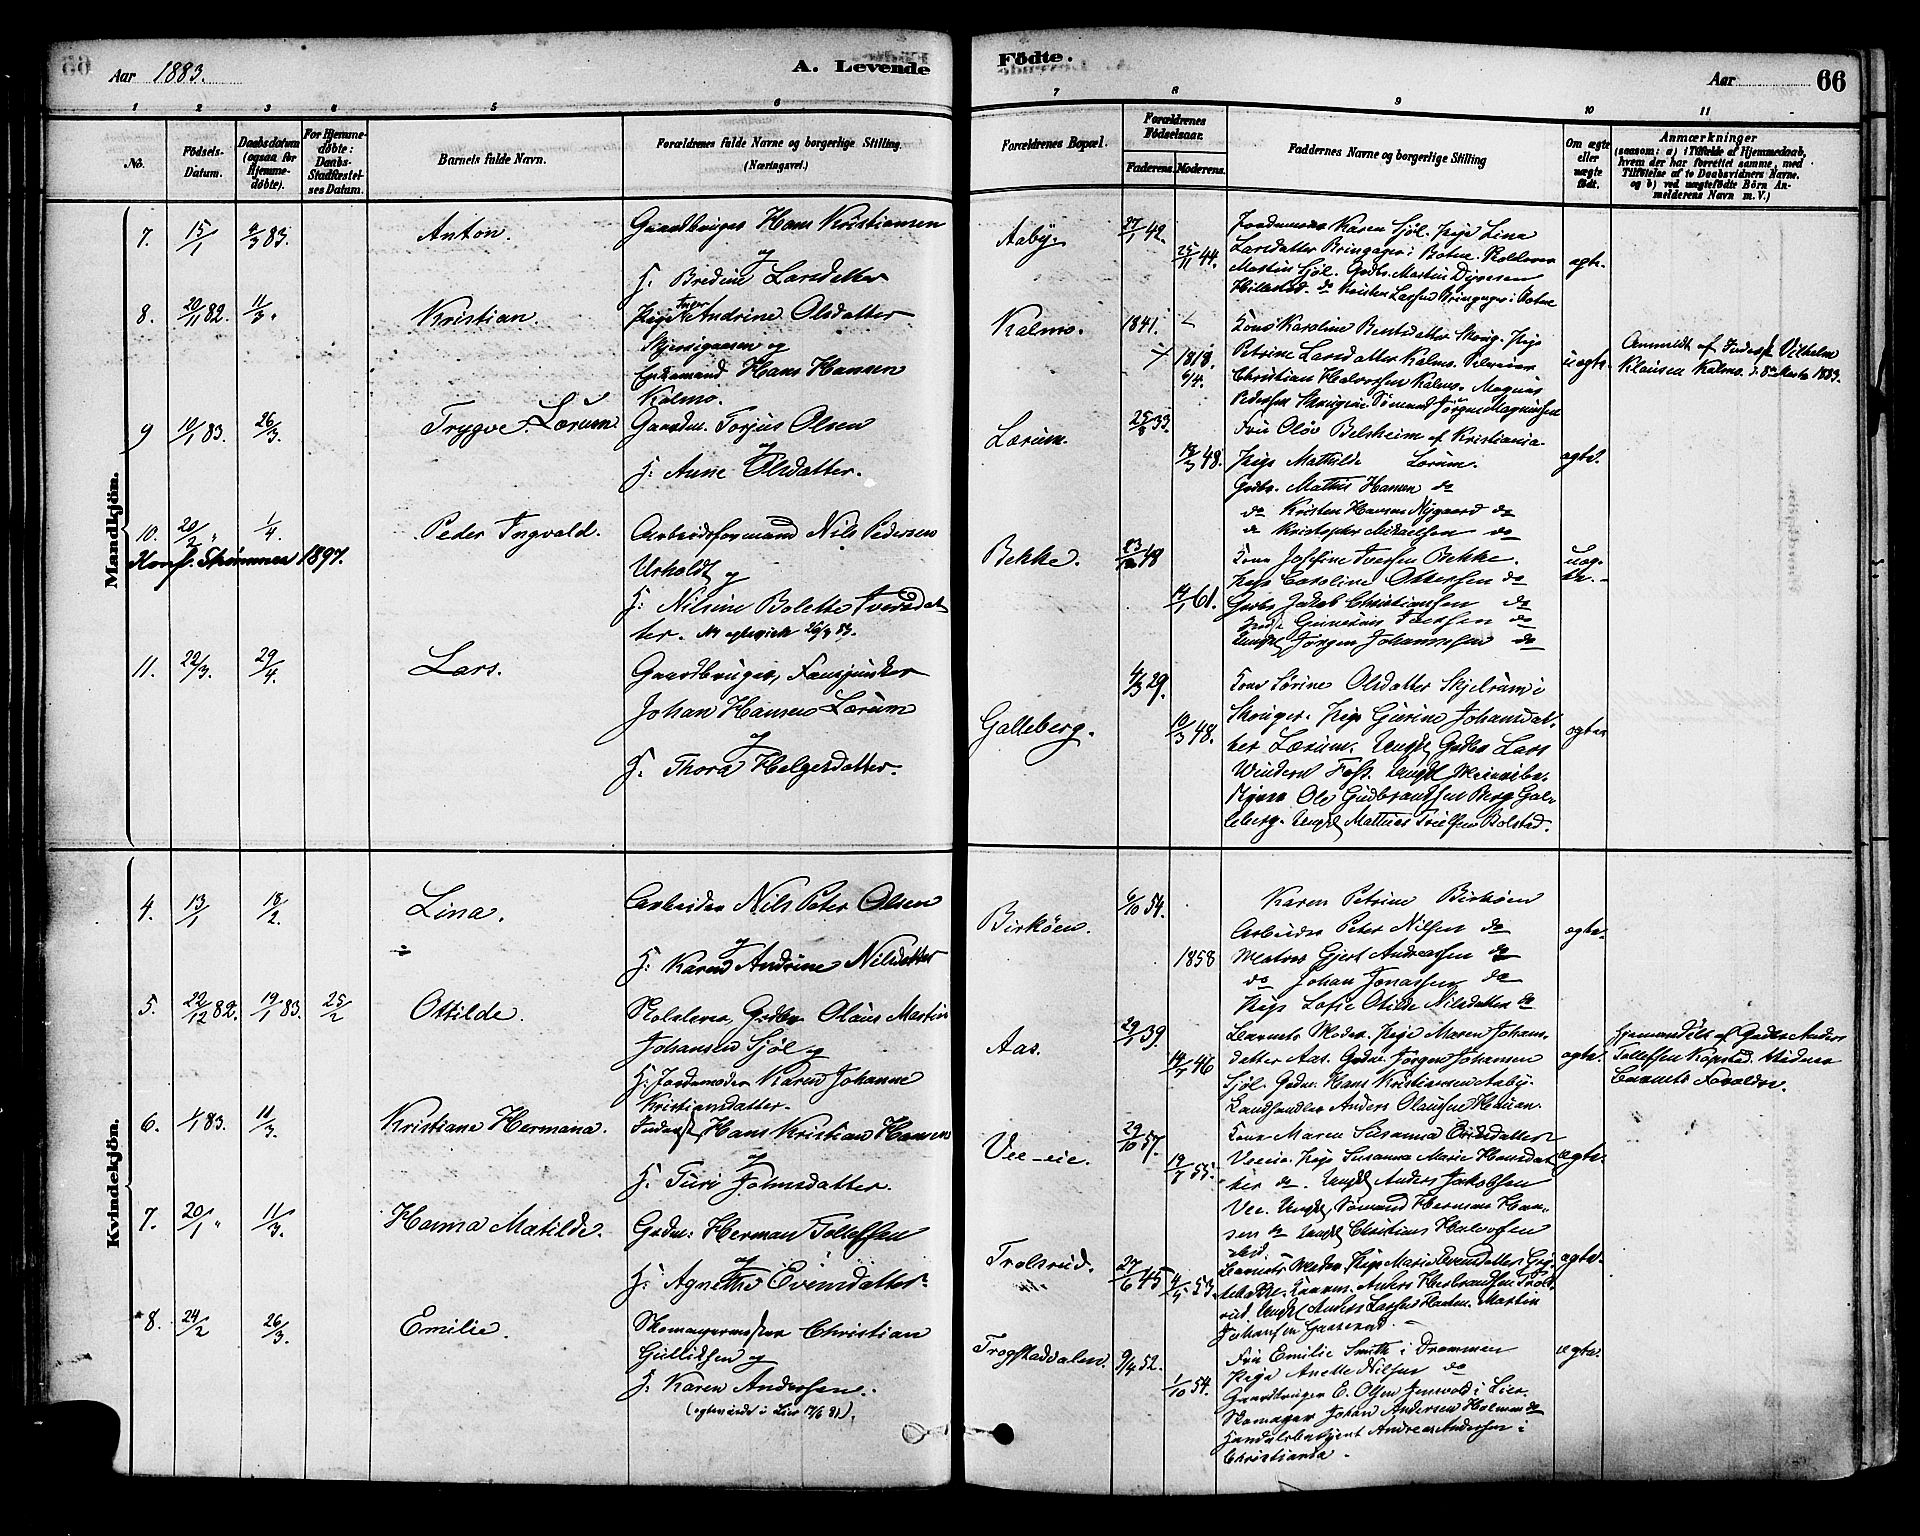 Aar 1883.
A. Levende
Fødte.
Aar
66
1 2 3 4 5 6
7 8 9 10 11
No.
Fødsels-Datum.
Daabsdatum (ogsaa for Hjemmedøbte).
For Hjemmedøbte: Daabs-Stadfæstelses Datum.
Barnets fulde Navn.
Forældrenes fulde Navne og borgerlige Stilling. (Næringsvei.)
Forældrenes Bopæl.
Forældrenes Fødselsaar.
Faderens. Moderens.
Faddernes Navne og borgerlige Stilling
Om ægte eller uægte født.
Anmærkninger
(saasom: a) i Tilfælde af Hjemmedaab, hvem der har forrettet samme, med Tilføielse af to Daabsvidners Navne. og b) ved uægtefødte Børn Anmelderens Navn m. V.)
Mandkjøn.
7. 15/1 83. Anton.
Gaardbruger Hans Kristiansen
og
H. Bredine Larsdatter
Aaby. 27/1 42.
25/11 44.
Jordemoder Karen Sjøl. Pige Lina
Larsdatter Bringager i Botne. Skolelærer
Martin Sjøl. Gdbr. Martin
Hillestad. do Kristen Larsen Bringager i Botne
ægte.
8. 20/11 82. 11/3 " Kristian.
Pige Inger Andrine Olsdatter
og
Enkemand Hans Hansen
Kalmo.
Kalmo. 1841.
1818.
Kone Karoline Berntsdatter Skoug. Pige
Petrine Larsdatter Kalmo. Selveier
Christian Halvorsen Kalmo. Magnus
Pedersen Sømand Jørgen Magnussen
uægte.
Anmeldt af Inderst Vilhelm
Klausen Kalmo. d. 8de Marts 1883.
9 10/1 83. 26/3. Trygve Lærum
Gaardm. Torjus Olsen
og
H. Anne Olsdatter.
Lærum. 25/8 33.
12/3 48.
Fru Oløv Belsheim af Kristiania.
Pige Mathilde Lærum.
Gdbr. Mathis Hansen do
do Kristen Hansen Nygaard do
do Kristopher Mikaelsen do
ægte.
10. 20/2 " 1/4. Peder Ingvald.
Konf. Strømmen 1897.
Arbeidsformand Nils Pedersen
Urholdt og
H. Nilsine Bolette Iversdatter. 26/3 83.
Bekke. 48
14/1 61.
Kone Josefine Iversen Bekke.
Pige Caroline Ottersen do
Gdbr. Jakob Christiansen do
Iversen do
Ungkl. Jørgen Johannesen do
uægte.
11. 22/3. 29/4. Lars.
Gaardbruger, Fansjunker
Johan Hansen Lærum
og
H. Thora Helgesdatter.
Galleberg. 4/3 29.
10/3 48.
Kone Sørine Olsdatter Skjelrum i
Skouger. Pige Gurine Johansdat-
ter Lærum. Ungkl. Gdbr. Lars
Foss. Ungkl.
Ole Gudbrandsen Berg Gal-
leberg. Ungkl. Mathias Bolstad.
ægte.
Kvindekjøn.
4. 13/1 18/2. Lina.
Arbeider Nils Peter Olsen
og
H. Karen Andrine Nilsdatter
Birkøen. 6/10 54.
1858
Karen Petrine Birkøen
Arbeider Peter Nilsen do
Matros Gjert Andreassen do
do Johan Jonassen do
Pige Sofie Otilde Nilsdatter do
ægte.
5. 22/12 82. 19/1 83. 25/2 Ottilde.
Skolelærer, Gedbr. Olaus Martin
Johansen Sjøl og
H. Jordemoder Karen Johanne
Kristiansdatter.
Aas. 39.
46
Barnets Moder. Pige Maren Johans-
datter Aas. Gdbr. Jørgen Johansen
Sjøl. Gdbr. Hans Kristiansen Aaby.
Landhandler Anders Olausen Hauan.
ægte.
Hjemmedøbt af Gdbr. Anders
Tollefsen Kopstad. Vidner
Barnets Forældre.
6. 1/1 83. 11/3. Kristiane Hermana.
Inderst Hans Kristian Hansen
og
H. Turi Johnsdatter.
Vee-eie. 29/10 57.
19/7 55.
Kone Maren Susanna Evensdatter
Veeeie. Pige Susanna Marie Hansdat-
ter do. Ungkl. Anders Jakobsen
Vee. Ungkl. Sømand Herman Han-
sen do Ungkl. Christian Halvorsen
ibid.
ægte.
7. 20/1 " 11/3. Hanna Matilde.
Gdbr. Herman Tollefsen
og
H. Agnethe Evensdatter.
Trolsrud. 27/6 45
53.
Barnets Moder. Pige Marie Evensdatter
Anders Herbrandsen Trols-
rud. Ungkl. Anders Larsen Martin
Johansen Gaaserud.
ægte.
8. 24/2 26/3. Emilie.
Skomagermester Christian
Gulliksen og
H. Karen Andersen.
(ægteviede i Lier 17/6 81).
Trogstaddalen. 9/4 52.
1/10 54.
Fru Emilie Smith i Drammen
Pige Anette Nilsen do
Gaardbruger E. Olsen i Lier.
Skomager Johan Andersen Holmen do
Handelsbetjent Andreas Andersen i
Christiania.
ægte.